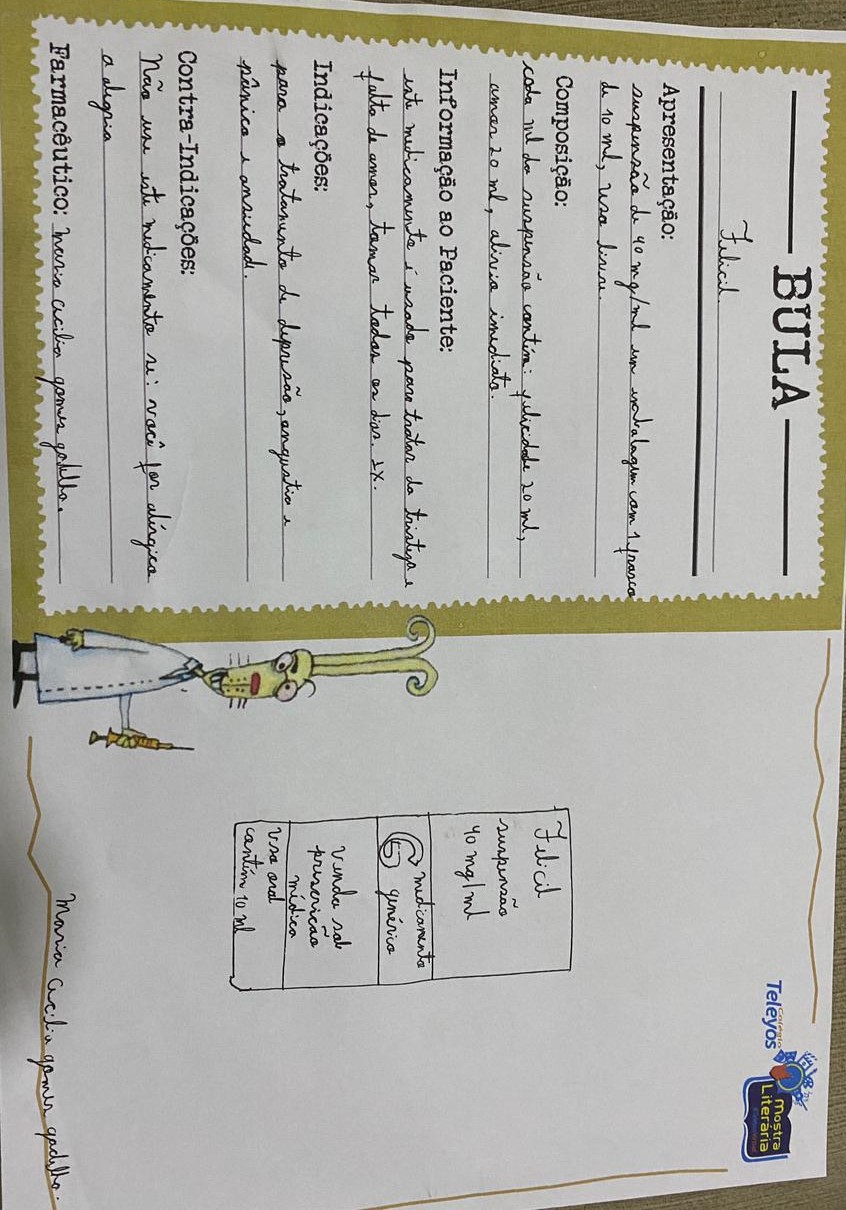 BULA
Felicil
Apresentação:
suspensão de 40 mg/ml em embalagem com 1 frasco
de 10 ml, uso livre.
Composição:
cada ml da suspensão contém: felicidade 20 ml,
amor 20 ml, alívio imediato.
Informação ao Paciente:
este medicamento é usado para tratar da tristeza e
falta de amor, tomar todos os dias. 1x.
Indicações:
para o tratamento de depressão, angustia e
pânico e ansiedade.
Contra-Indicações:
Não use este medicamento se: você for alérgico
a alegria
Farmacêutico: maria cecilia gomes gadelha.
Colégio
Teleyos
Mostra
Literária
Felicil
suspensão
40 mg/ml
G medicamento
genérico
Venda sob
prescrição
médica
Uso oral
contém 10 ml
Maria Cecilia gomes gadelha.